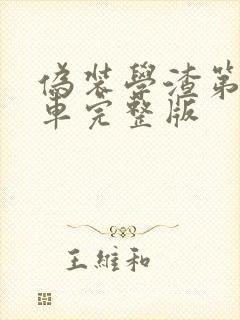 偽裝學渣第
車完整版
王維和